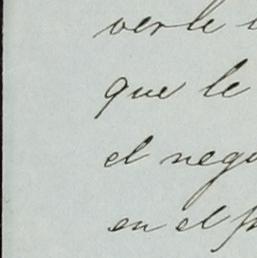 verle
que le
el nego
en el